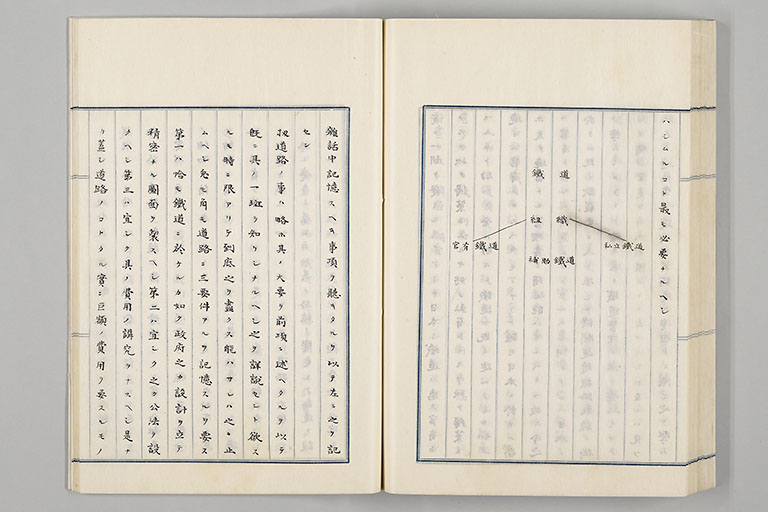 ハシムルコト最モ必要ナルヘシ
鐵道
組織
私立鐵道
補助鐵道
官有鐵道
雜話中記憶スヘキ事項ヲ聽キタルヲ以テ左ニ之ヲ記
セン
扨道路ノ事ハ略ホ其ノ大要ヲ前項ニ述ヘタルヲ以テ
既ニ其ノ一斑ヲ知ラレナルヘシ之ヲ詳說セント欲ス
ルモ時ニ限アリテ到底之ヲ盡クス能ハサレハ之ニ止
ムヘシ兔モ角モ道路ニ三要件アルヲ記憶スルヲ要ス
第一ハ恰モ鐵道ニ於ケルカ如ク政府之カ設計ヲ立テ
精密ナル圖面ヲ製スヘシ第二ハ宜シク之カ公法ヲ設
クヘシ第三ハ宜シク其ノ費用ノ講究ヲナスヘシ是ナ
リ蓋シ道路ノコトタル實ニ巨額ノ費用ヲ要スルモノ